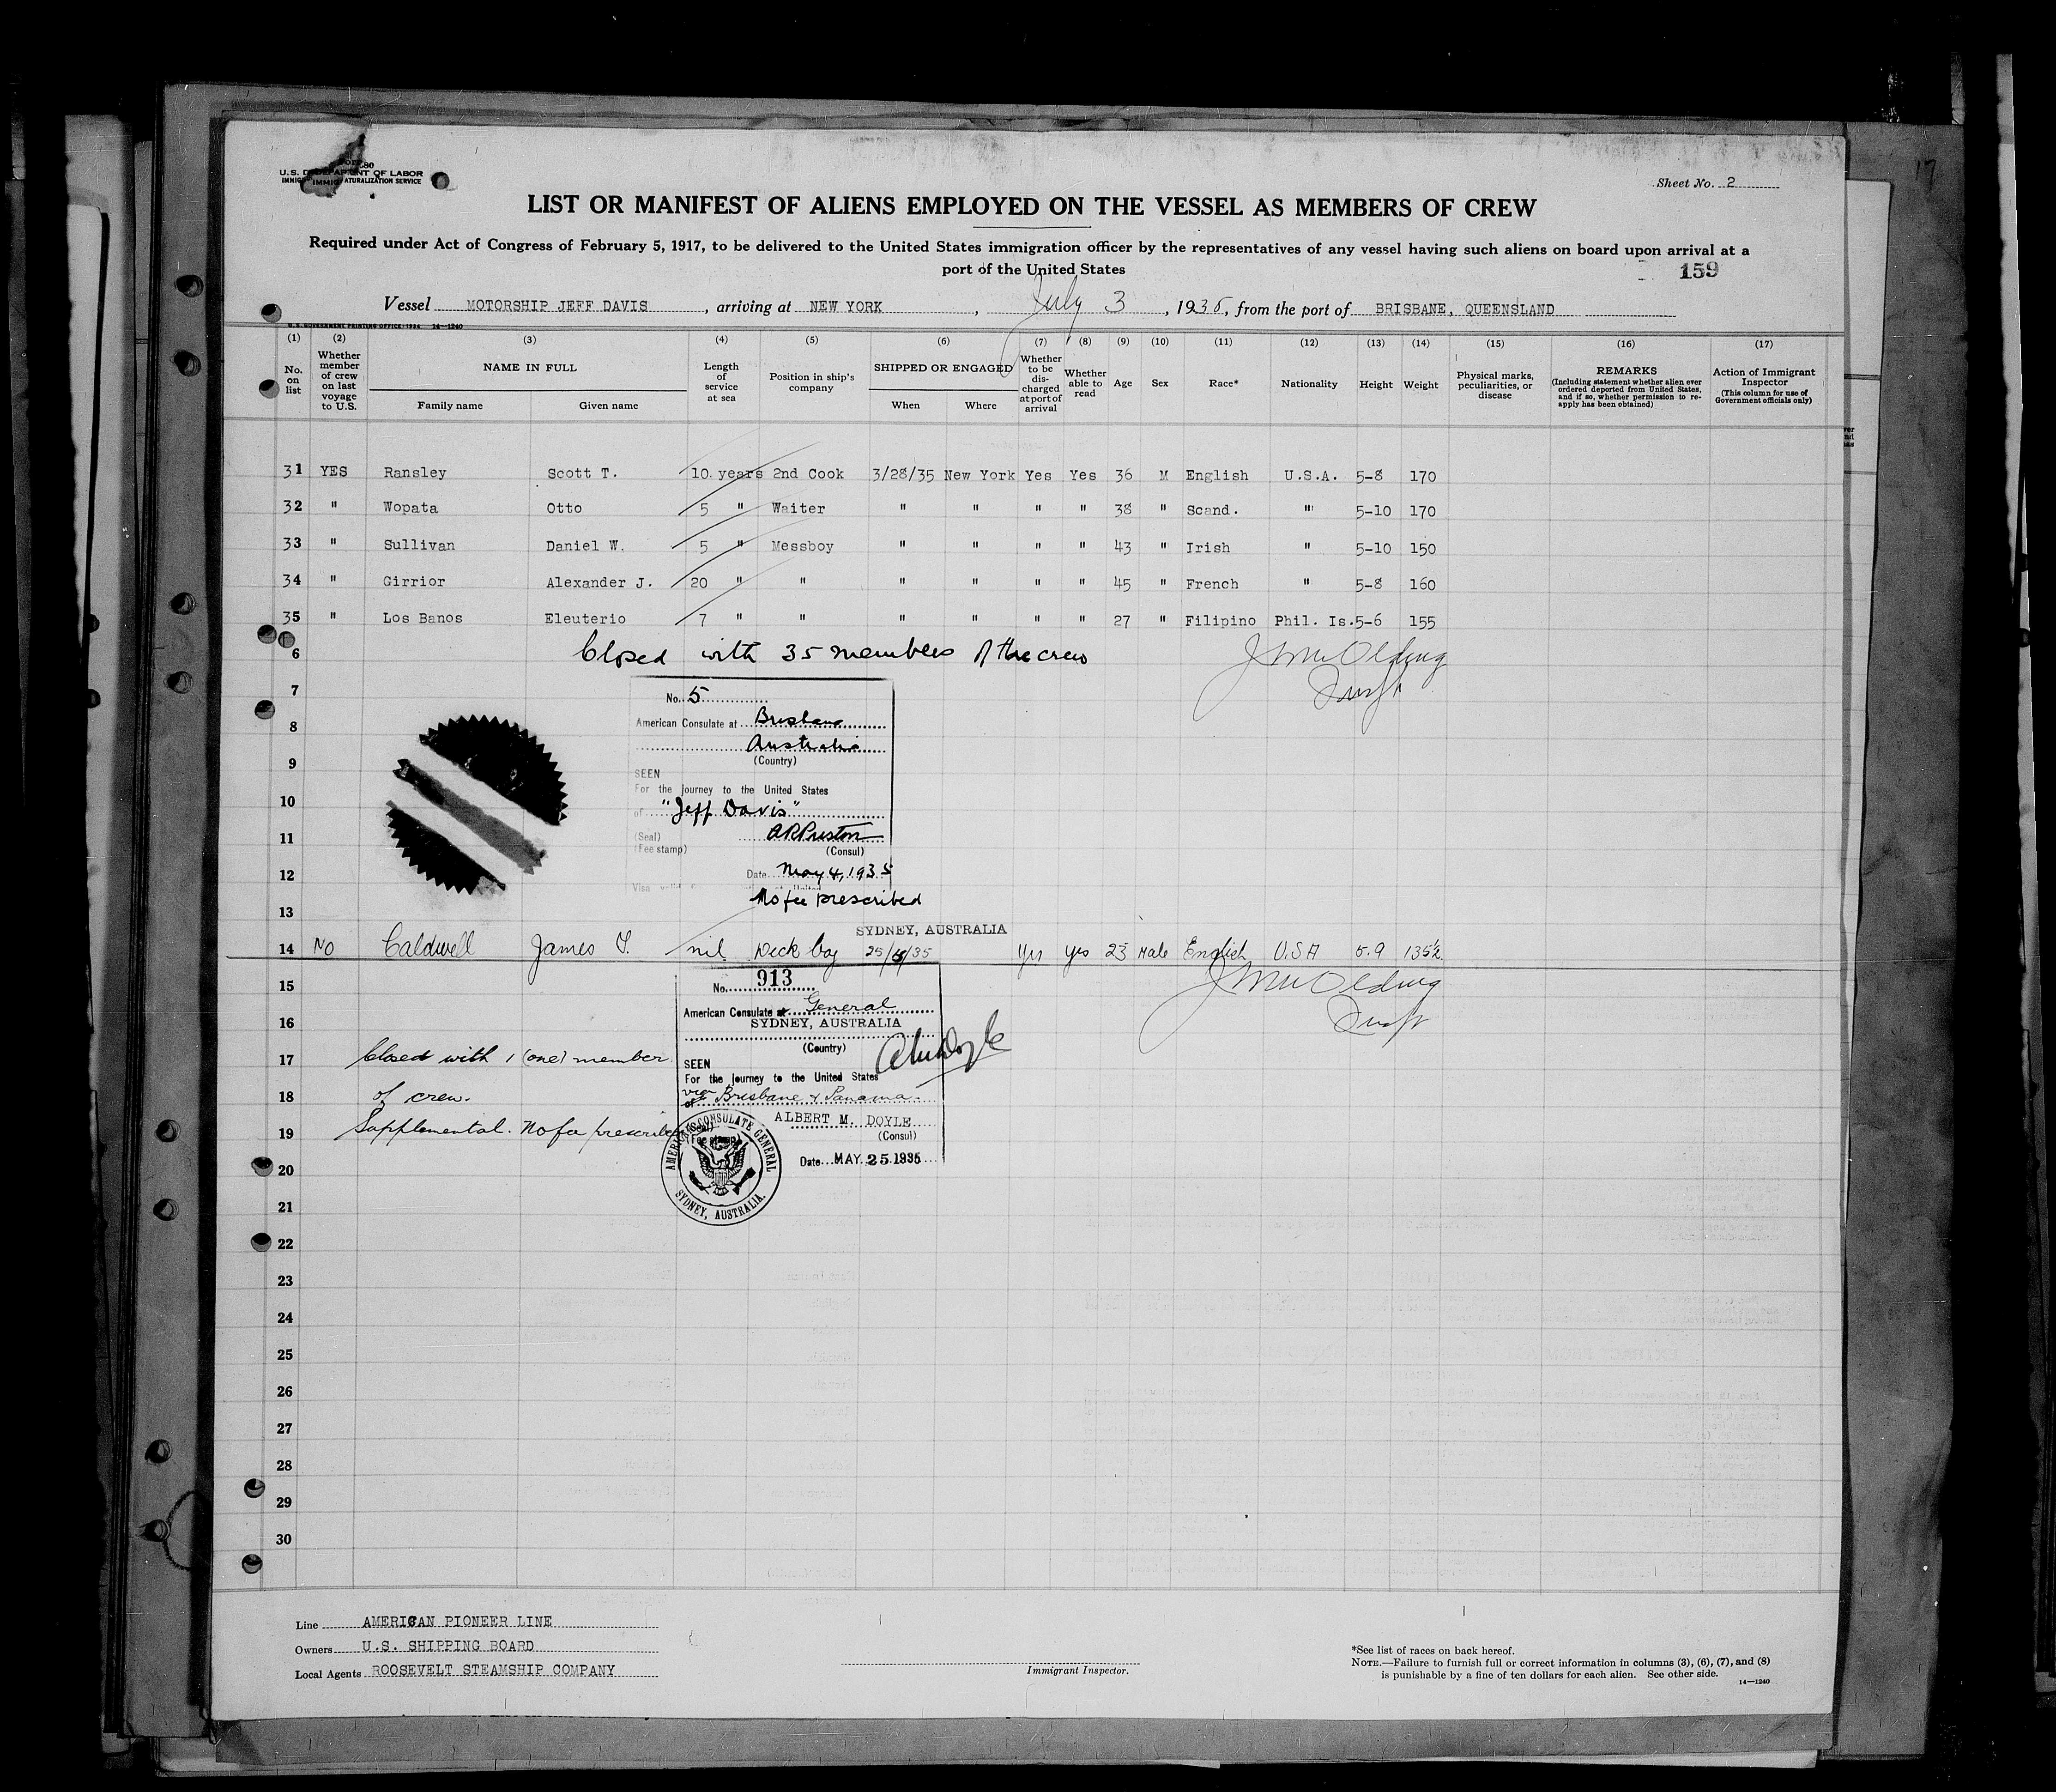 17
U.S. DEPARTMENT OF LABOR
NATURALIZATION SERVICE
Sheet No. 2
LIST OR MANIFEST OF ALIENS EMPLOYED ON THE VESSEL AS MEMBERS OF CREW
Required under Act of Congress of February 5, 1917, to be delivered to the United States immigration officer by the representatives of any vessel having such aliens on board upon arrival at a
port of the United States
159
Vessel MOTORSHIP JEFF DAVIS, arriving at NEW YORK, July 3, 1935, from the port of BRISBANE, QUEENSLAND
U.S. GOVERNMENT PRINTING OFFICE 1934 14—1240
(1) (2) (3) (4) (5) (6) (7) (8) (9) (10) (11) (12) (13) (14) (15) (16) (17)
No. on list
Whether member of crew on last voyage to U.S.
NAME IN FULL
Family name Given name
Length of service at sea
Position in ship's company
SHIPPED OR ENGAGED
When Where
Whether to be discharged at port of arrival
Whether able to read
Age Sex Race* Nationality Height Weight
Physical marks, peculiarities, or disease
REMARKS
(Including statement whether alien ever ordered deported from United States, and if so, whether permission to re-apply has been obtained)
Action of Immigrant Inspector
(This column for use of Government officials only)
31 YES Ransley Scott T. 10 years 2nd Cook 3/28/35 New York Yes Yes 36 M English U.S.A. 5-8 170
32 " Wopata Otto 5 " Waiter " " " " 38 " Scand. " 5-10 170
33 " Sullivan Daniel W. 5 " Messboy " " " " 43 " Irish " 5-10 150
34 " Girrior Alexander J. 20 " " " " " " 45 " French " 5-8 160
35 " Los Banos Eleuterio 7 " " " " " " 27 " Filipino Phil. Is. 5-6 155
6 Closed with 35 members of the crew
7
No. 5
8 American Consulate at Brisbane
Australia
9 (Country)
SEEN
For the journey to the United States
10 of "Jeff Davis"
11 (Seal) (Fee stamp)
(Consul)
12 Date May 4, 1935
No fee prescribed
13
SYDNEY, AUSTRALIA
14 No Caldwell James nil Deck boy 25/5/35 Yes Yes 23 Male English U.S.A 5.9 135½
15 No. 913
American Consulate General
16 SYDNEY, AUSTRALIA
(Country)
17 Closed with 1 (one) member
SEEN
For the journey to the United States
18 of crew.
via Brisbane & Panama
ALBERT M. DOYLE
19 Supplemental. No fee prescribed
(Fee stamp)
(Consul)
Date MAY 25 1935
AMERICAN CONSULATE GENERAL
SYDNEY, AUSTRALIA.
20
21
22
23
24
25
26
27
28
29
30
Line AMERICAN PIONEER LINE
Owners U.S. SHIPPING BOARD
Local Agents ROOSEVELT STEAMSHIP COMPANY
Immigrant Inspector.
*See list of races on back hereof.
NOTE.—Failure to furnish full or correct information in columns (3), (6), (7), and (8)
is punishable by a fine of ten dollars for each alien. See other side.
14—1240